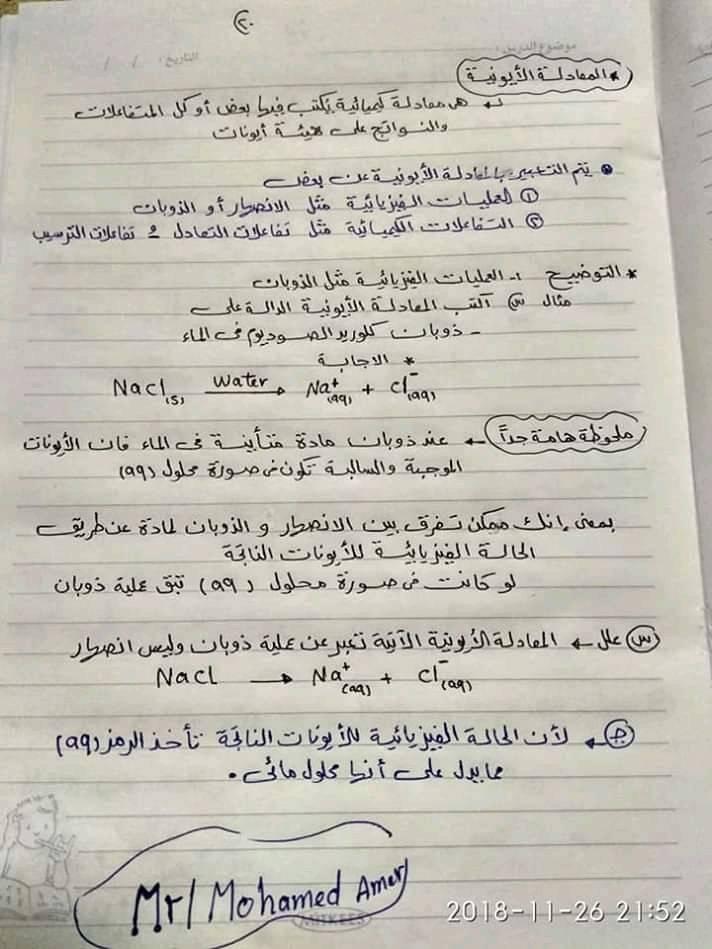 ٢٠
موضوع الدرس:
التاريخ: / /
* المعادلة الأيونية
↳ هى معادلة كيميائية يكتب فيها بعض أو كل المتفاعلات
والنواتج على هيئة أيونات
• يتم التعبير بالمعادلة الأيونية عن بعض
① العمليات الفيزيائية مثل الانصهار أو الذوبان
② التفاعلات الكيميائية مثل تفاعلات التعادل و تفاعلات الترسيب
* التوضيح ١- العمليات الفيزيائية مثل الذوبان
مثال س اكتب المعادلة الأيونية الدالة على
- ذوبان كلوريد الصوديوم فى الماء
* الاجابة
NaCl(s) —Water→ Na+(aq) + Cl-(aq)
ملحوظة هامة جداً ← عند ذوبان مادة متأينة فى الماء فان الأيونات
الموجبة والسالبة تكون فى صورة محلول (aq)
بمعنى إنك ممكن تفرق بين الانصهار و الذوبان لمادة عن طريق
الحالة الفيزيائية للأيونات الناتجة
لو كانت فى صورة محلول (aq) تبقى عملية ذوبان
س علل ← المعادلة الأيونية الآتية تعبر عن عملية ذوبان وليس انصهار
NaCl → Na+(aq) + Cl-(aq)
ج ← لأن الحالة الفيزيائية للأيونات الناتجة تأخذ الرمز (aq)
مما يدل على أنها محلول مائى.
Mr/ Mohamed Amer
MITKEES
2018-11-26 21:52